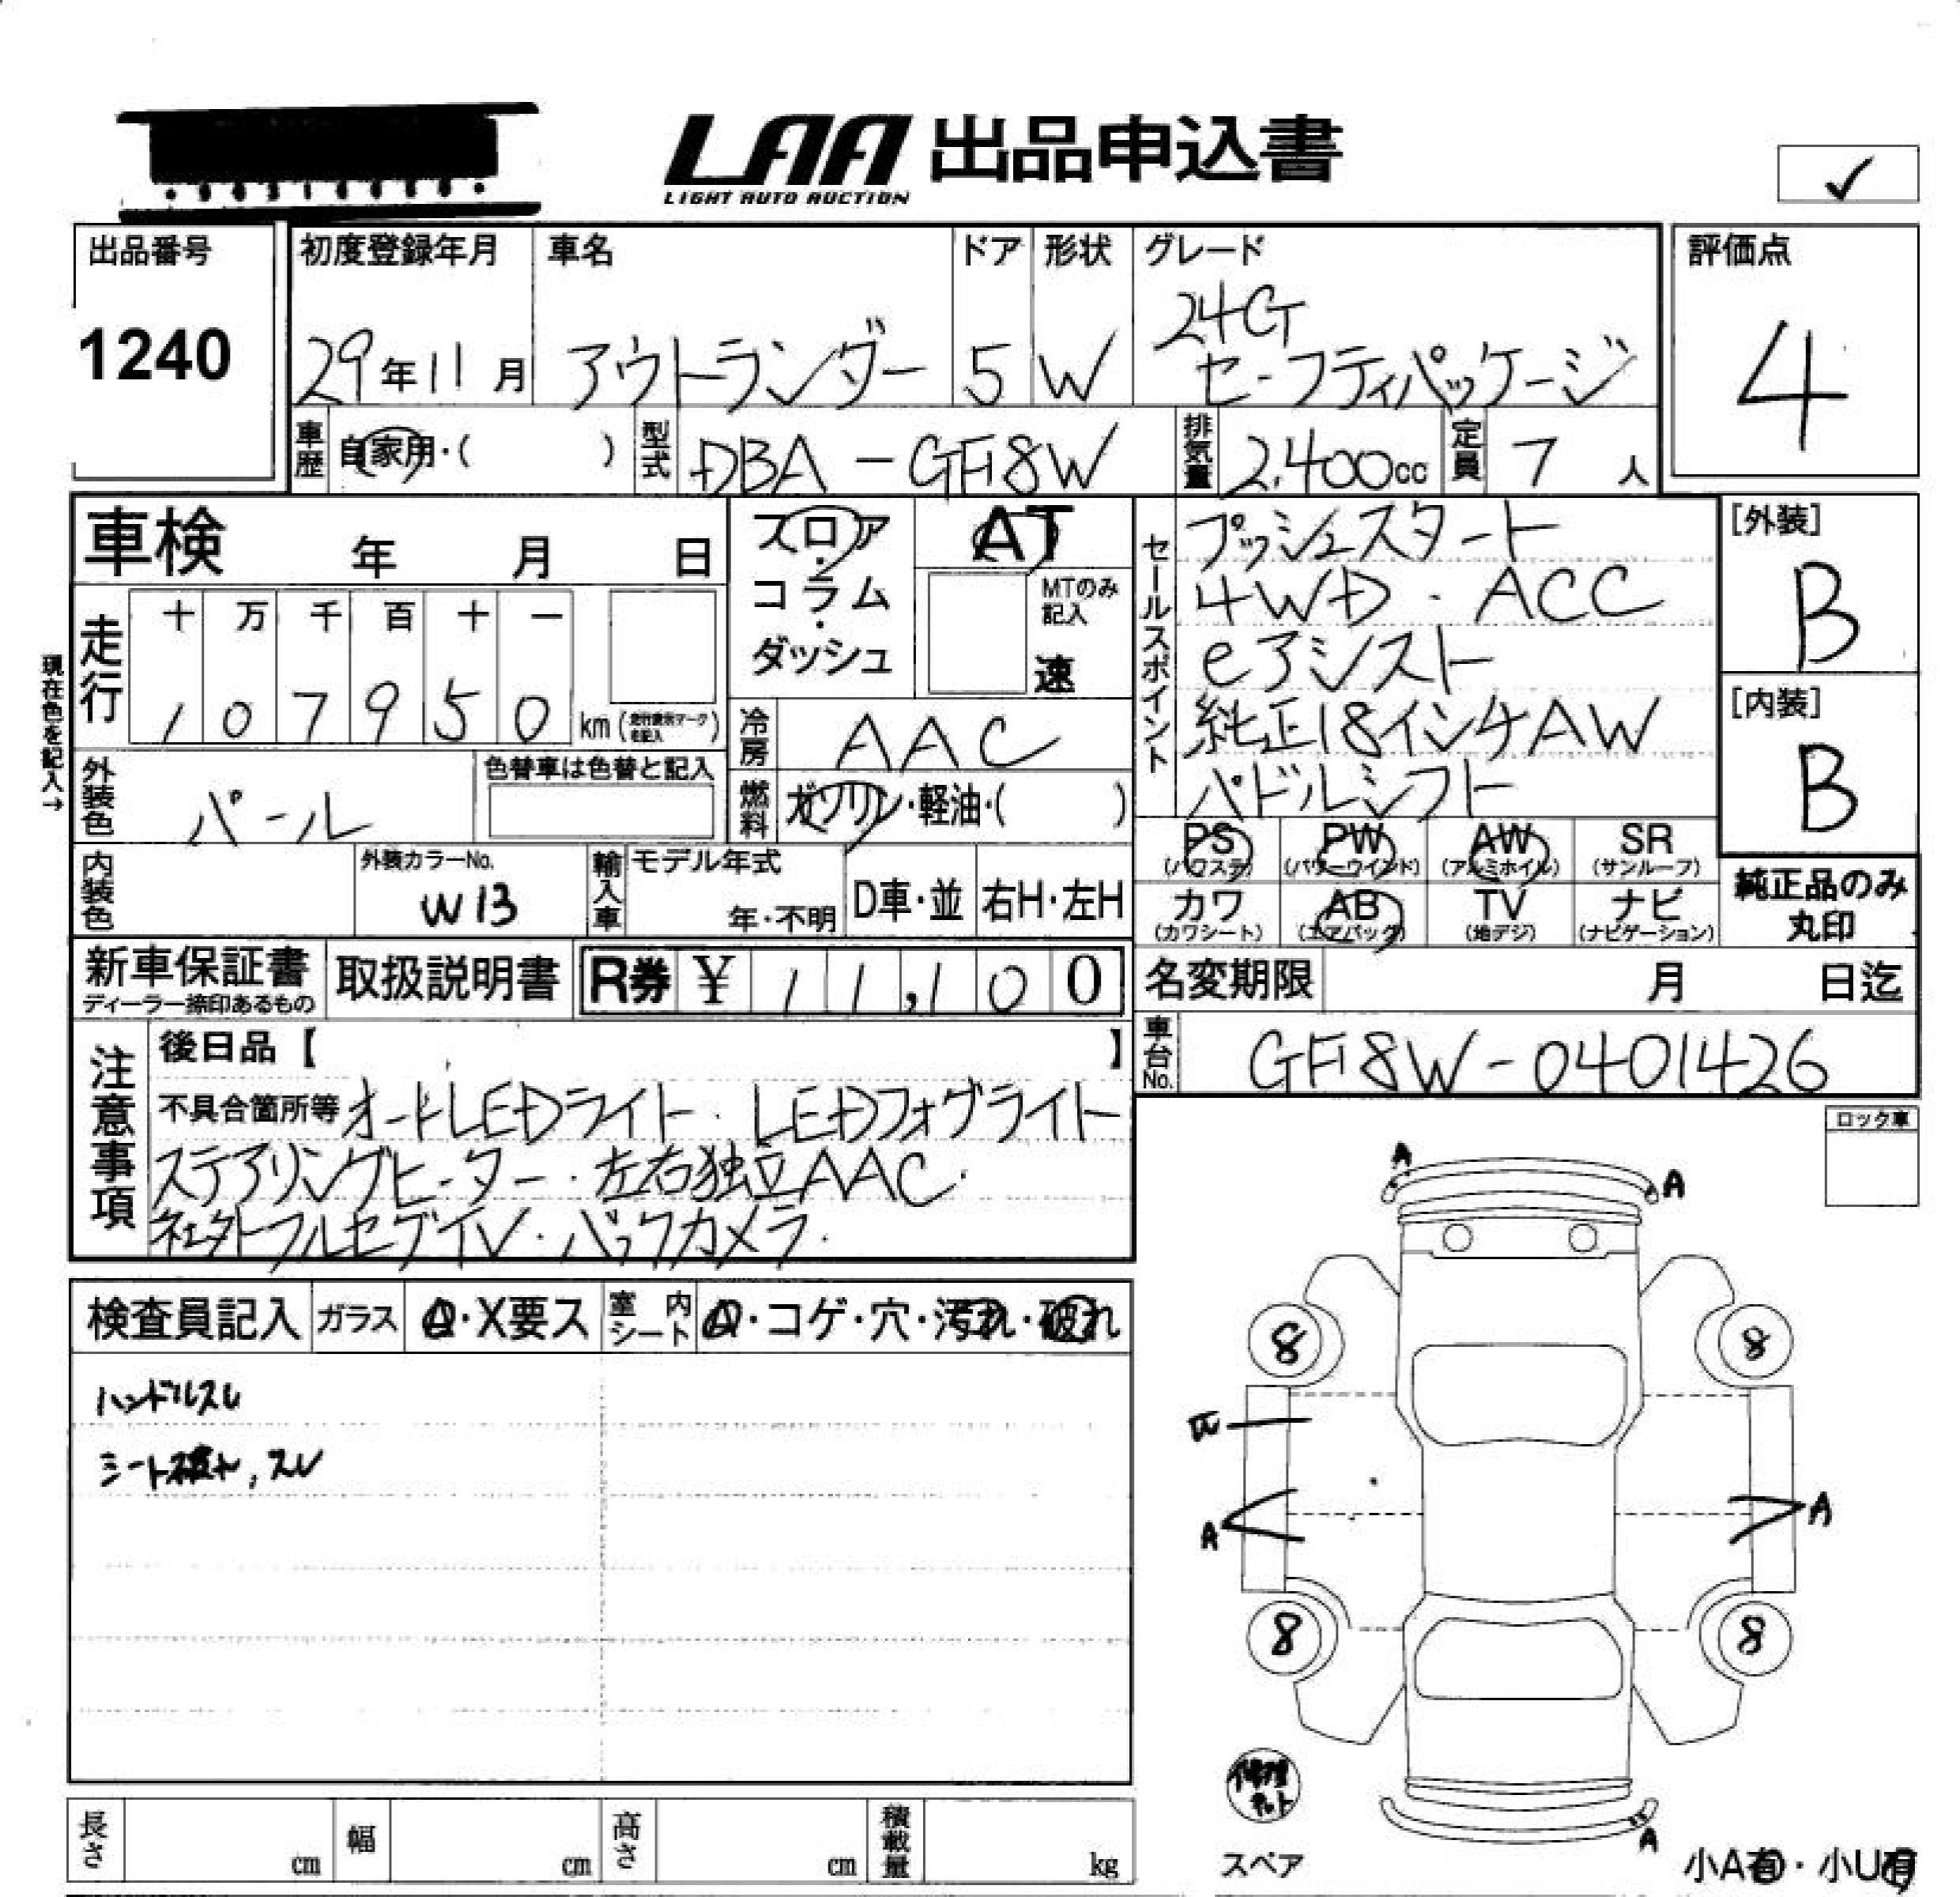 LAA 出品申込書
LIGHT AUTO AUCTION
✓
出品番号
1240
初度登録年月
29年11月
車名
アウトランダー
ドア
5
形状
W
グレード
24G
セーフティパッケージ
評価点
4
車歴
自家用・( )
型式
DBA-GF8W
排気量
2,400cc
定員
7人
車検 年 月 日
フロア・コラム・ダッシュ
AT
MTのみ記入
速
セールスポイント
プッシュスタート
4WD・ACC
eアシスト
純正18インチAW
パドルシフト
[外装]
B
[内装]
B
現在色を記入→
走行
十 万 千 百 十 一
1 0 7 9 5 0 km
冷房
AAC
外装色
パール
色替車は色替と記入
燃料
ガソリン・軽油・( )
PS (パワステ)
PW (パワーウインド)
AW (アルミホイル)
SR (サンルーフ)
カワ (カワシート)
AB (エアバッグ)
TV (地デジ)
ナビ (ナビゲーション)
純正品のみ
丸印
内装色
外装カラーNo.
W13
輸入車
モデル年式
年・不明
D車・並
右H・左H
新車保証書
ディーラー捺印あるもの
取扱説明書
R券 ¥ 11,100
名変期限 月 日迄
車台No.
GF8W-0401426
注意事項
後日品【 】
不具合箇所等 オートLEDライト・LEDフォグライト
ステアリングヒーター・左右独立AAC・
社外フルセグTV・バックカメラ・
ロック車
検査員記入
ガラス A・X要ス
室内シート A・コゲ・穴・汚れ・破れ
ハンドルスレ
シート破れ,スレ
A
A
8
8
W
A
A
8
8
A
修理キット
スペア
小A有・小U有
長さ cm
幅 cm
高さ cm
積載量 kg